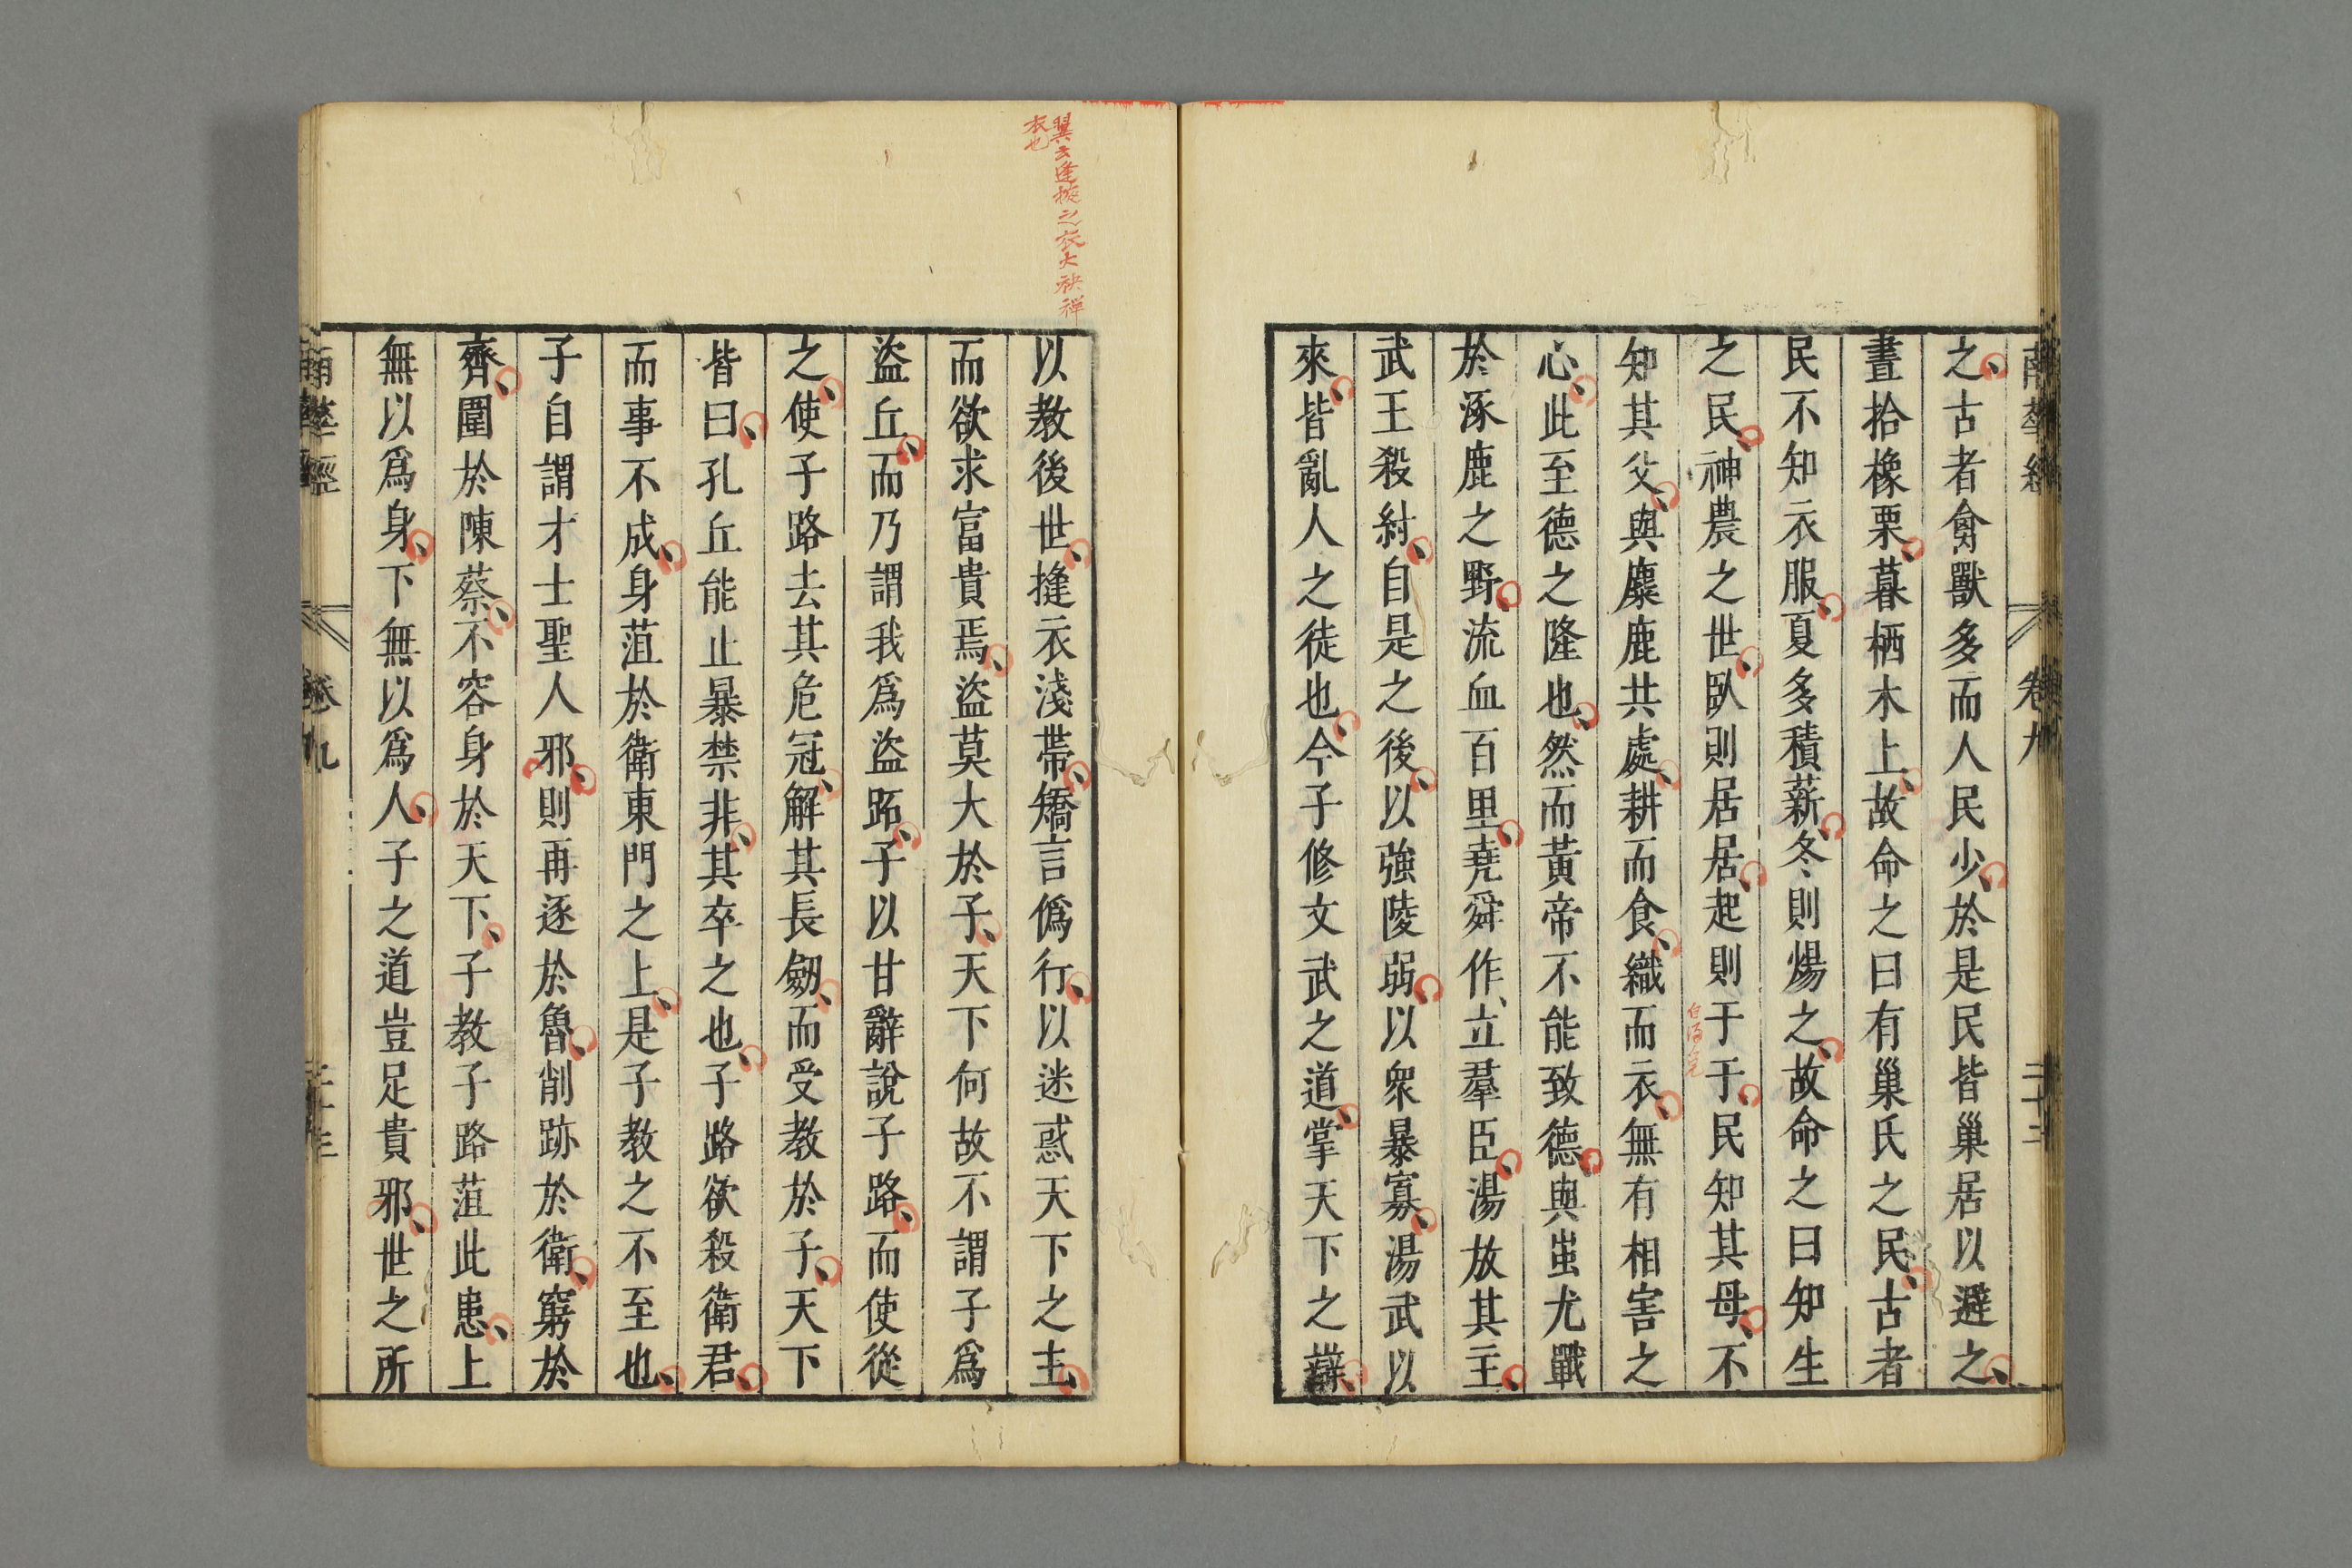 南華經 卷九 二十二
之古者禽獸多而人民少於是民皆巢居以避之
晝拾橡栗暮栖木上故命之曰有巢氏之民古者
民不知衣服夏多積薪冬則煬之故命之曰知生
之民神農之世臥則居居起則于于民知其母不
知其父與麋鹿共處耕而食織而衣無有相害之
心此至德之隆也然而黃帝不能致德與蚩尤戰
於涿鹿之野流血百里堯舜作立羣臣湯放其主
武王殺紂自是之後以強陵弱以衆暴寡湯武以
來皆亂人之徒也今子修文武之道掌天下之辯
翼云逢掖之衣大袂禪
衣也
以教後世摓衣淺帶矯言僞行以迷惑天下之主
而欲求富貴焉盜莫大於子天下何故不謂子爲
盜丘而乃謂我爲盜跖子以甘辭說子路而使從
之使子路去其危冠解其長劒而受教於子天下
皆曰孔丘能止暴禁非其卒之也子路欲殺衛君
而事不成身菹於衛東門之上是子教之不至也
子自謂才士聖人邪則再逐於魯削跡於衛窮於
齊圍於陳蔡不容身於天下子教子路菹此患上
無以爲身下無以爲人子之道豈足貴邪世之所
南華經 卷九